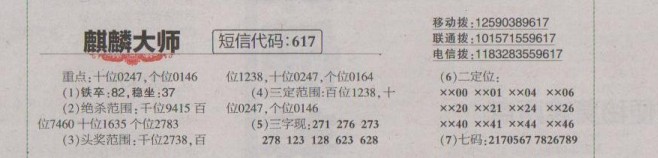 麒麟大师
短信代码:617
移动拨:12590389617
联通拨:101571559617
电信拨:1183283559617
重点:十位0247,个位0146
(1)铁卒:82,稳坐:37
(2)绝杀范围:千位9415 百
位7460 十位1635 个位2783
(3)头奖范围:千位2738,百
位1238,十位0247,个位0164
(4)三定范围:百位1238,十
位0247,个位0146
(5)三字现:271 276 273
278 123 128 623 628
(6)二定位:
××00 ××01 ××04 ××06
××20 ××21 ××24 ××26
××40 ××41 ××44 ××46
(7)七码:2170567 7826789